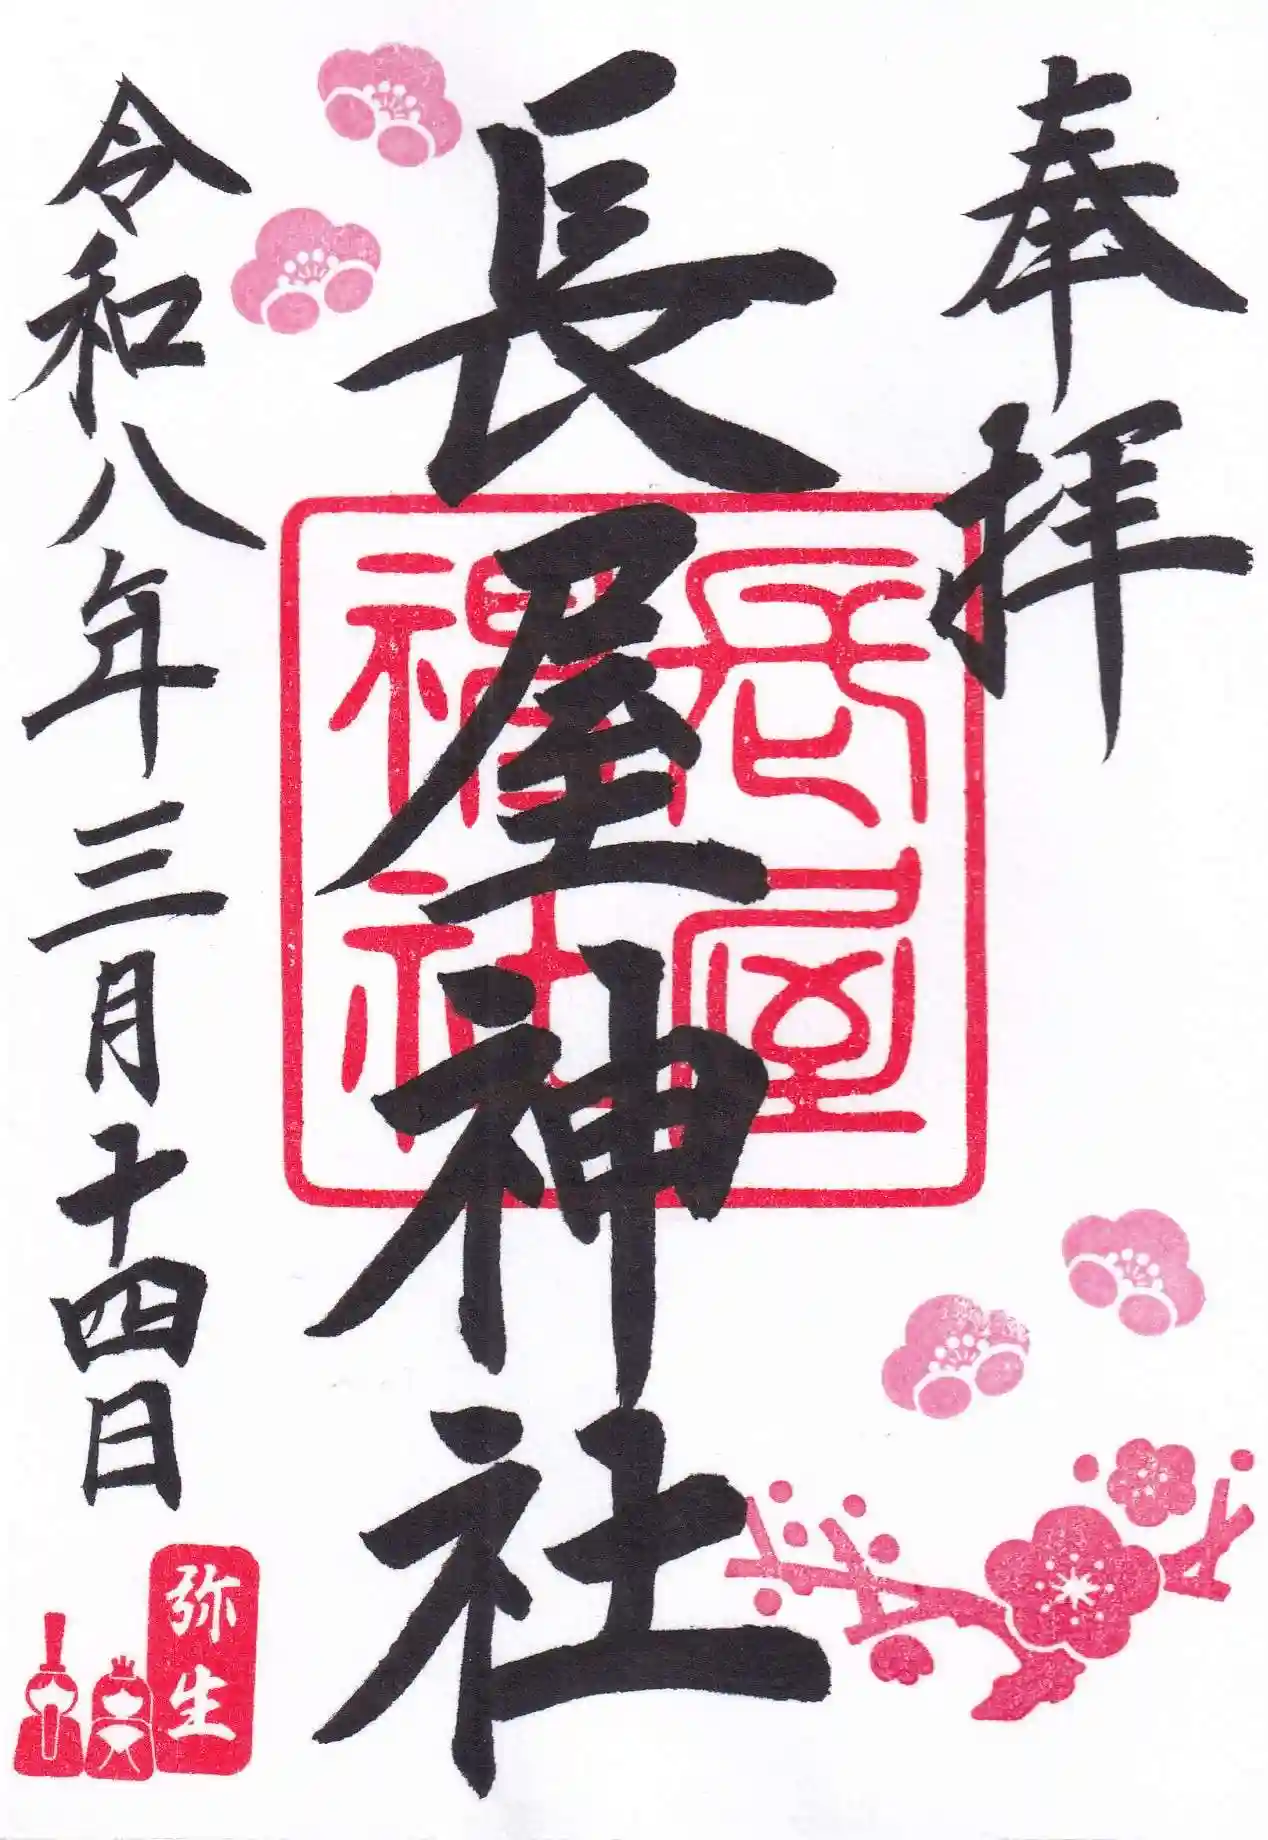 奉拝
長屋神社
長屋
神社
令和八年三月十四日
弥生